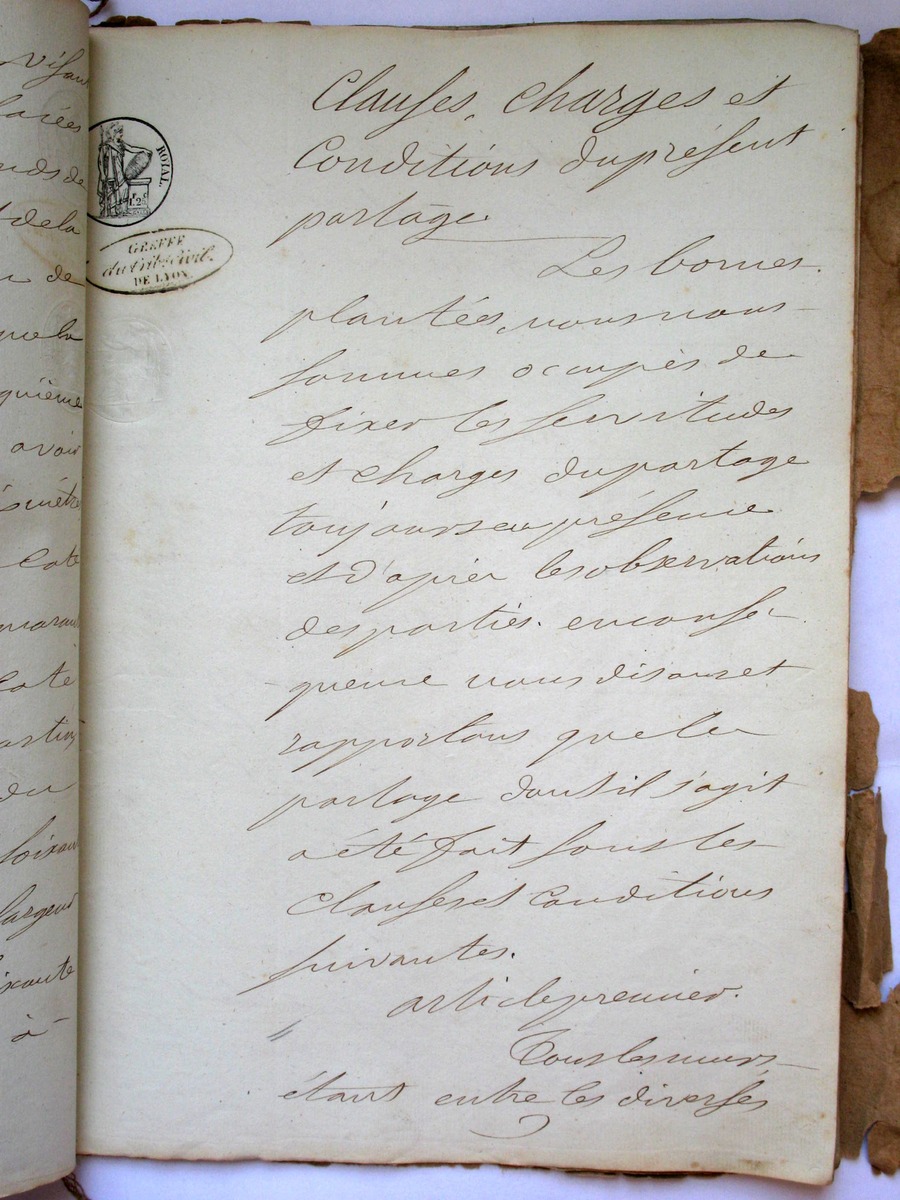 visant
loiées
nds de
de la
de
que la
quième
avoir
cote
coté
du
loixan
largeur
ixante
à
ROYAL.
1F. 25C
GREFFE
du trib. civil.
DE LYON
Clauses, charges et
Conditions du présent
partage.
Les bornes
plantées, nous nous
sommes occupés de
fixer les servitudes
et charges du partage
toujours en présence
et d'après les observations
des parties. en consé-
quence nous disons et
rapportons que le
partage dont il s'agit
a été fait sous les
clauses et Conditions
suivantes.
article premier.
Tous les murs
étant entre les diverses